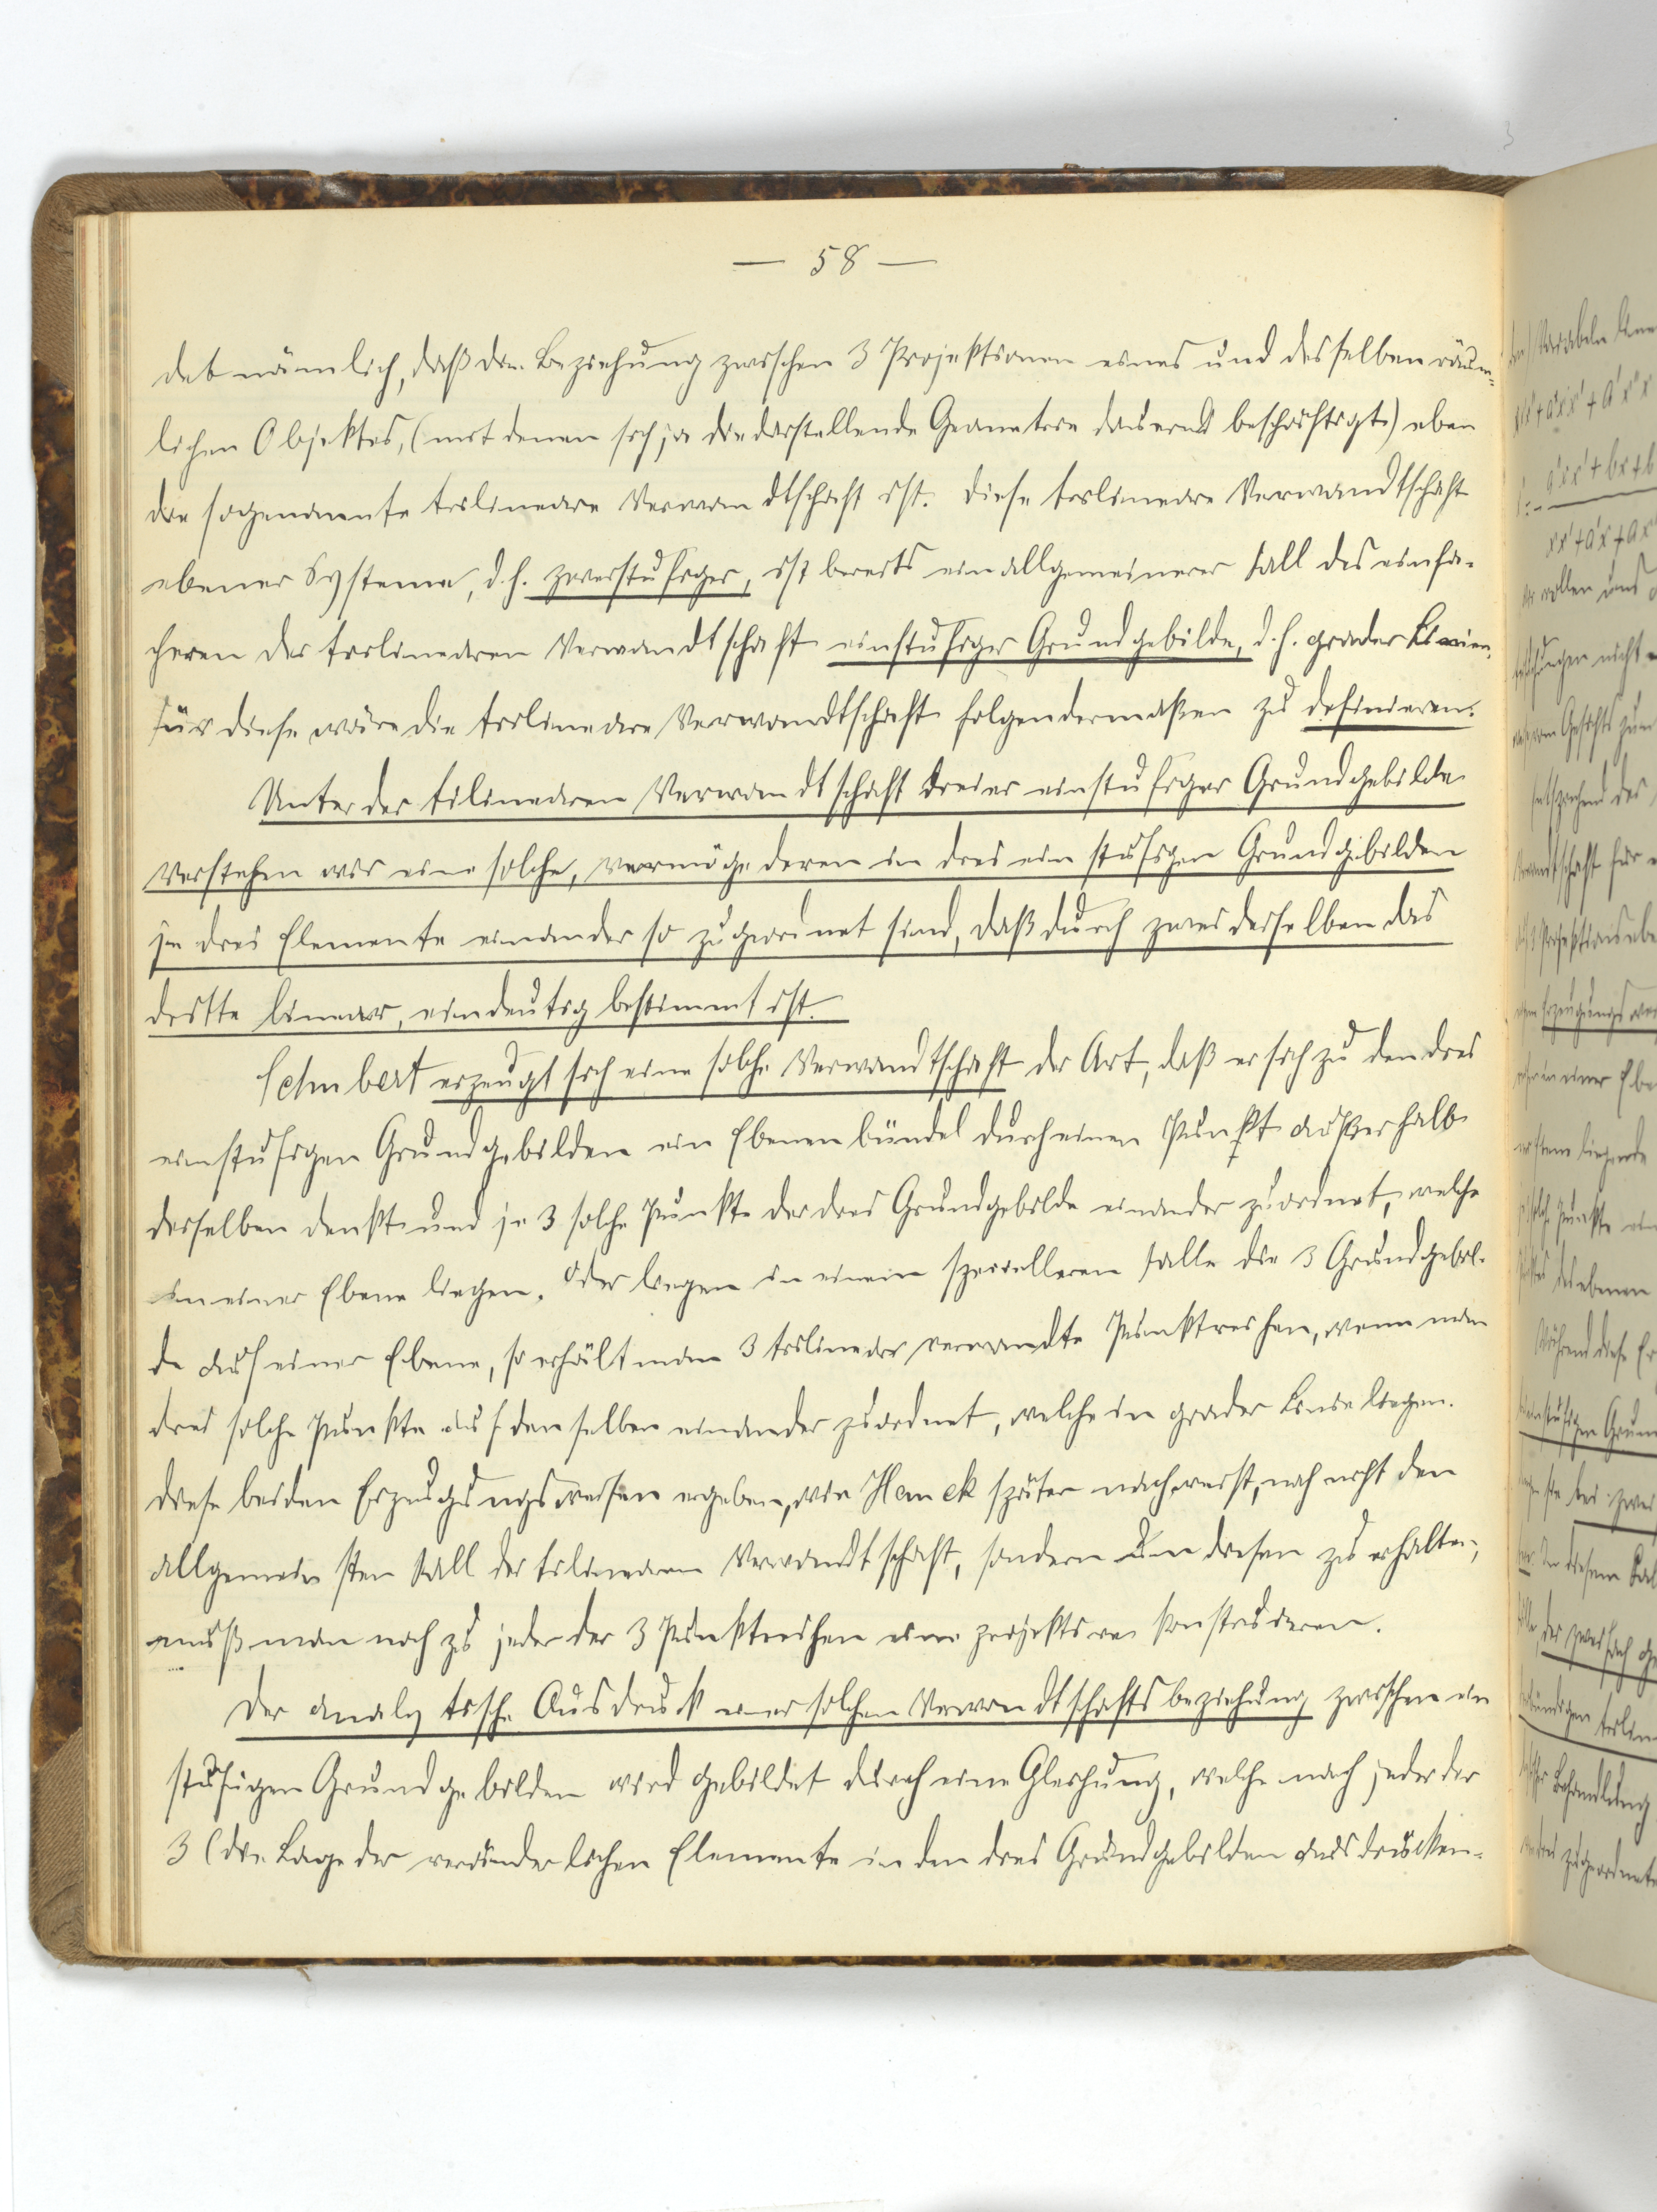 — 58 —
det nämlich, daß die Beziehung zwischen 3 Projektionen eines und desselben räum-
lichen Objektes, (mit denen sich ja die darstellende Geometrie dauernd beschäftigt) eben
die sogenannte trilineare Verwandtschaft ist. Diese trilineare Verwandtschaft
ebener Systeme, d.h. zweistufiger, ist bereits ein allgemeinerer Fall des einfa-
cheren der trilinearen Verwandtschaft einstufiger Grundgebilde, d.h. grader Linien.
Für diese wäre die trilineare Verwandtschaft folgendermaßen zu definieren:
Unter der trilinearen Verwandtschaft dreier einstufiger Grundgebilde
verstehen wir eine solche, vermöge deren in drei einstufigen Grundgebilden
je drei Elemente einander so zugeordnet sind, daß durch zwei derselben das
dritte linear, eindeutig bestimmt ist.
Schubert erzeugt sich eine solche Verwandtschaft der Art, daß er sich zu den drei
einstufigen Grundgebilden ein Ebenenbündel durch einen Punkt außerhalb
derselben denkt und je 3 solche Punkte der drei Grundgebilde einander zuordnet, welche
in einer Ebene liegen. Oder liegen in einem spezielleren Falle die 3 Grundgebil-
de auf einer Ebene, so erhält man 3 trilinear verwandte Punktreihen, wenn man
drei solche Punkte auf denselben einander zuordnet, welche in grader Linie liegen.
Diese beiden Erzeugungsweisen ergeben, wie Hauck später nachweist, noch nicht den
allgemeinsten Fall der trilinearen Verwandtschaft, sondern um diesen zu erhalten,
muß man noch zu jeder der 3 Punktreihen eine projektive konstruieren.
Der analytische Ausdruck einer solchen Verwandtschaftsbeziehung zwischen ein
stufigen Grundgebilden wird gebildet durch eine Gleichung, welche nach jeder der
3 (die Lage der veränderlichen Elemente in den drei Grundgebilden ausdrücken-